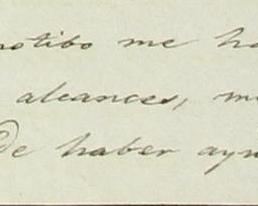 motibo me ha
alcances, m
De haber ayu